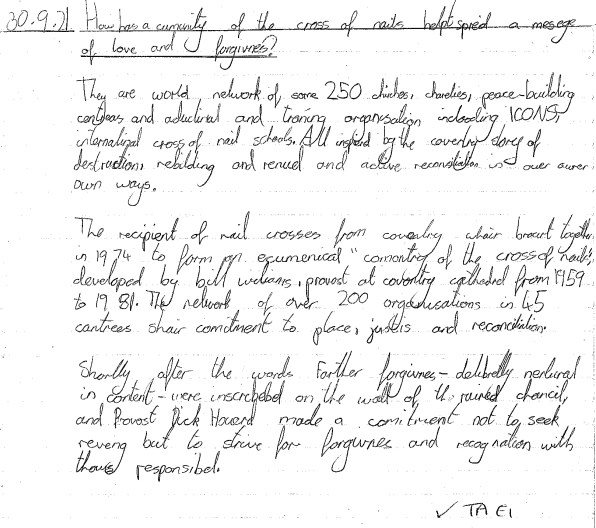 30.9.21 How has a cumunity of the cross of nails helpt spred a mesege
of love and forgivnes?
They are world network of some 250 chirches, charelies, peace-building
centreas and aductirial and traning organisation inclooding ICONS,
internatinal cross of nail schools. All inspierd by the coventry storey of
destruction, rebilding and renual and active reconsiliation in over ower
own ways.
The recipient of nail crosses from coventry whair brourt together
in 1974 to form an ecumenical "comontry of the cross of nails",
developed by bill williams, provost at coventry cathedral from 1959
to 1981. The network of over 200 organusations in 45
cantrees shair comitment to place, justis and reconciliation.
Shortly after the words Farther forgivnes - delibretly nertural
in content - were inscrhebed on the wall of the ruined chancil,
and Provost Dick Howerd made a comitment not to seek
reveng but to strive for forgivnes and recognation with
thous responsibel.
✓ TA E1